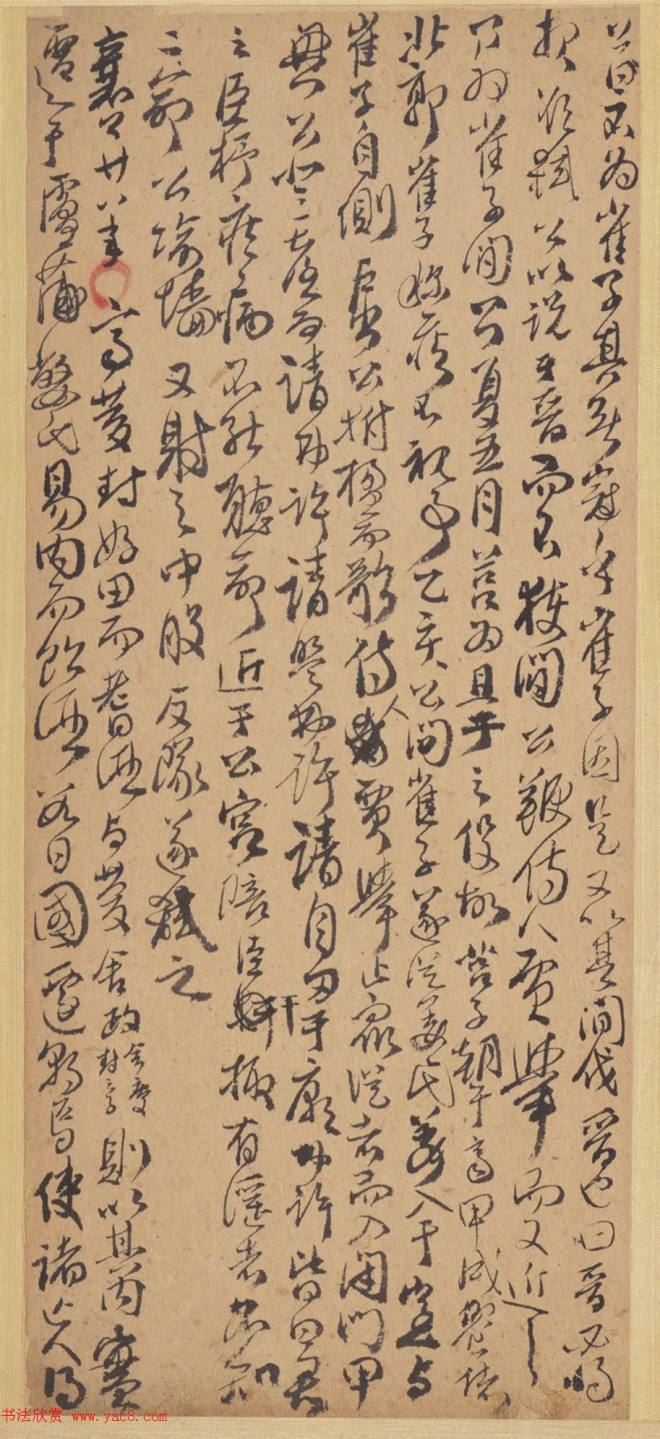 公曰不為崔子其無冠乎崔子因是又以其間伐晉也曰晉必將
報欲弒公以說于晉而不獲間公鞭侍人賈舉而又近之
乃為崔子間公夏五月莒為且于之役故莒子朝于齊甲戌饗諸
北郭崔子稱疾不視事乙亥公問崔子遂從姜氏姜入于室與
崔子自側戶出公拊楹而歌侍人賈舉止眾從者而入閉門甲
興公登臺而請弗許請盟弗許請自刃于廟弗許皆曰君
之臣杼疾病不能聽命近于公宮陪臣干掫有淫者不知
二命公踰墻又射之中股反隊遂弒之
襄公廿八年齊慶封好田而耆酒與慶舍政舍慶封子則以其內實
遷于盧蒲嫳氏易內而飲酒數日國遷朝焉使諸亡人得
书法欣赏 www.yac8.com